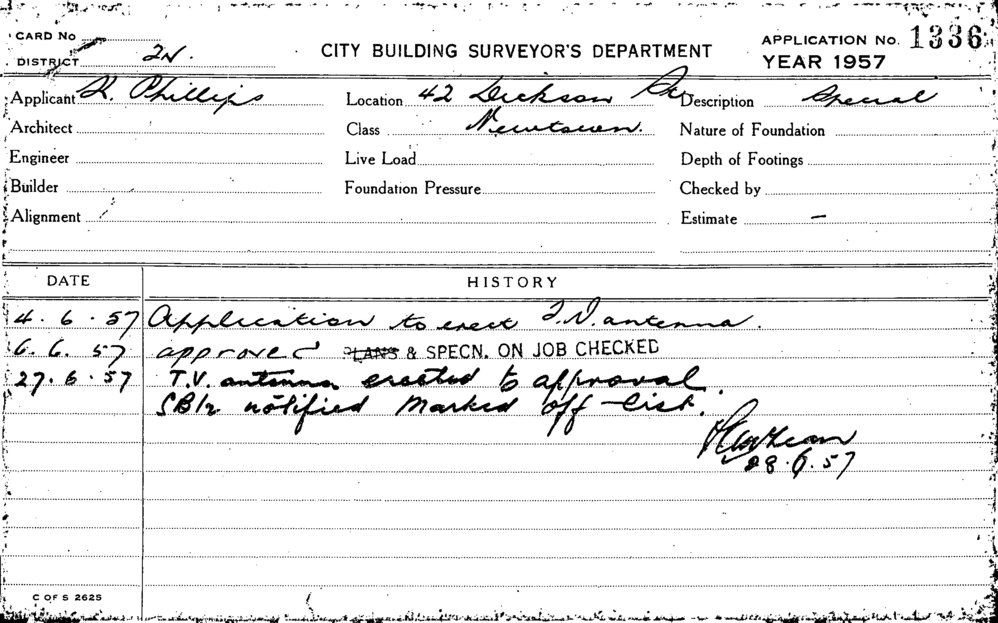 CARD No
CITY BUILDING SURVEYOR'S DEPARTMENT
APPLICATION No. 1336
DISTRICT 2N.
YEAR 1957
Applicant K. Phillips Location 42 Dickson St Description Special
Architect Class Newtown. Nature of Foundation
Engineer Live Load Depth of Footings
Builder Foundation Pressure Checked by
Alignment Estimate —
DATE HISTORY
4.6.57 Application to erect T.V. antenna.
6.6.57 approved PLANS & SPECN. ON JOB CHECKED
27.6.57 T.V. antenna erected to approval.
notified Marked off List.
28.6.57
C OF S 2625